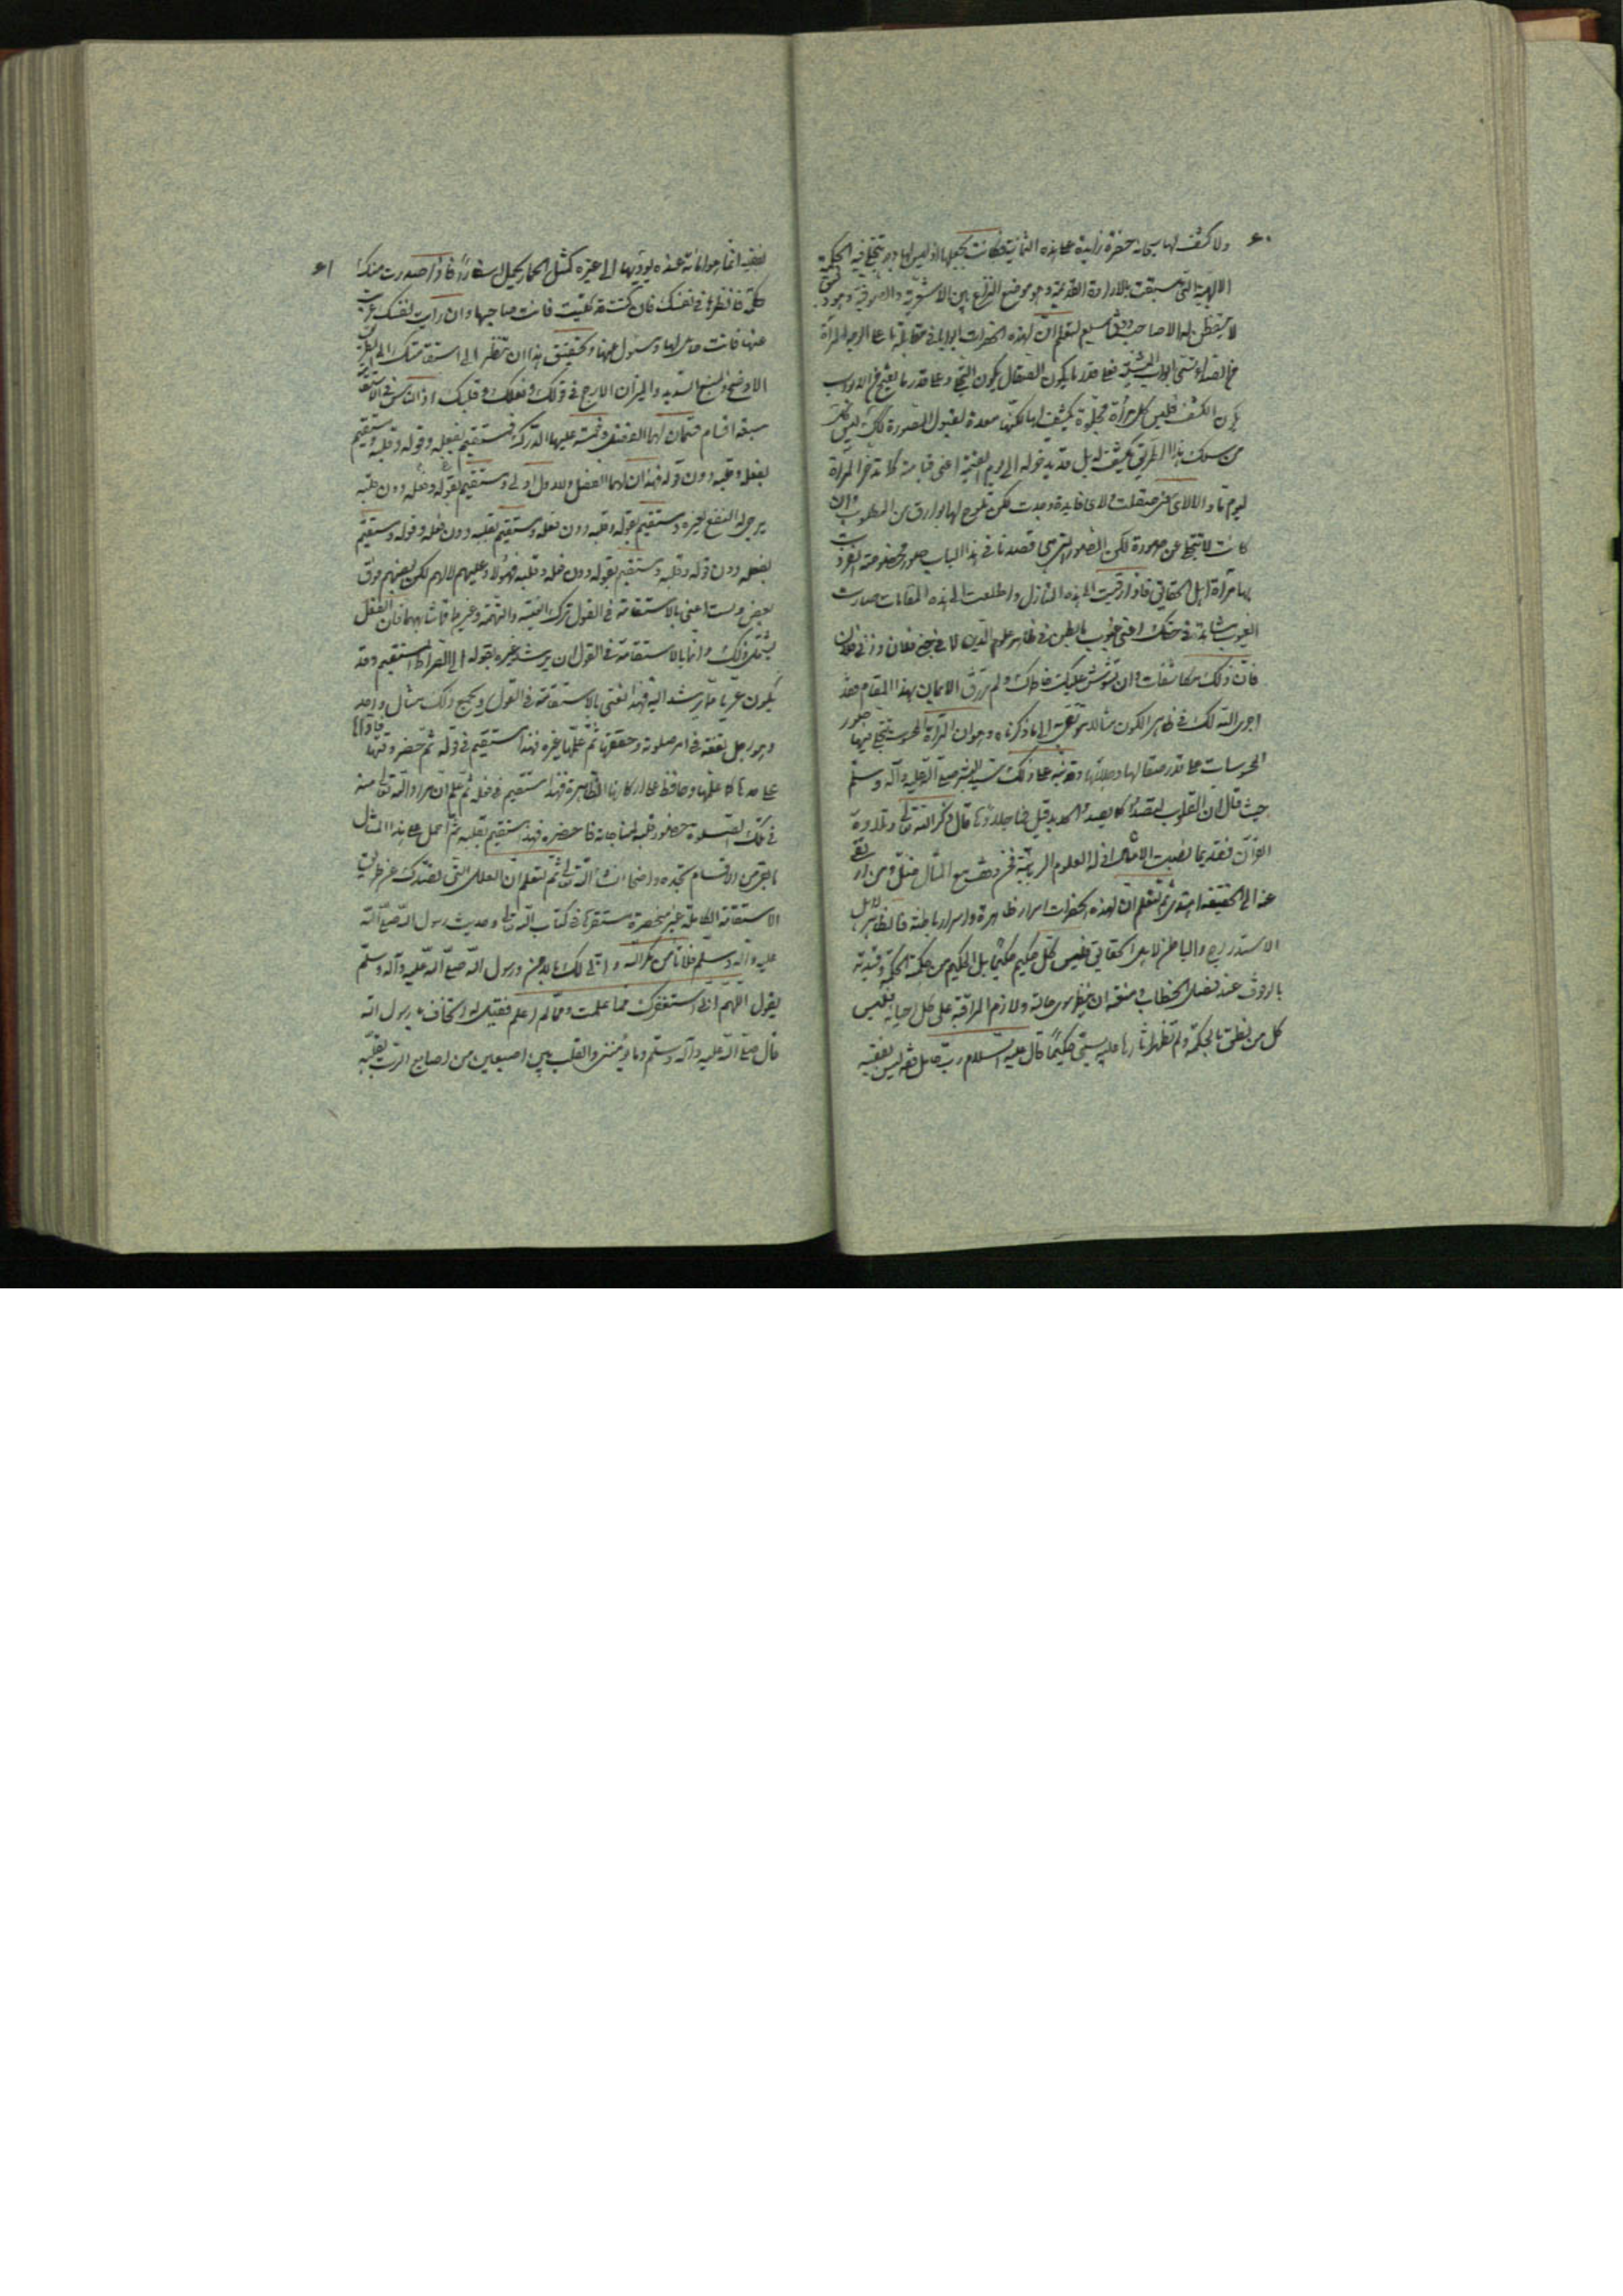 ۶۰
ولا كشف لها سبحانه حضرة زايدة على هذه الثمانية فكانت بجعلها اذ ليس لها وجه تتجلى فيه الحكمة
الالهية التى سبقت بالارادة القديمة وهو موضع النزاع بين الاشعرية والصوفية وجود
لا يتفطن لها الا صاحب ذوق سليم لتعلم ان لهذه الحضرات ابوابا فى مقابلة ما على الوجه المرآة
من الصداء تسمى ابواب المشية فعلى قدر ما يكون الصقال يكون التجلى وعلى قدر ما يفتح من الابواب
يكون الكشف فليس كل مرآة مجلوة يكشف لها لكنها معدة لقبول الصورة كذلك ليس كل
من سلك هذا الطريق يكشف له بل قد يدخر له الى يوم القيمة اعنى قيامته كما تدخر المرآة
ليوم ما والا لاى شىء صقلت ولاى فايدة وجدت لكن تلوح لها بوارق من المطلوب وان
كانت لا تتجلى عن صورة لكن الصور التى هى قصدنا فى هذا الباب صور مخصوصة انفردت
بها مرآة اهل الحقايق فاذا رقيت الى هذه المنازل واطلعت الى هذه المقامات صارت
الغيوب مشاهدة فى حقك اعنى غيوب ما بطن فى ظاهر علوم الدين لا فى نجىء فلان وزنى فلان
فان ذلك مكاشفات وان تشوش عليك خاطرك ولم ترزق الايمان بهذا المقام فقد
اجرى الله لك فى ظاهر الكون مثالا ترتقى الى ما ذكرناه وهو ان المرآة المحسوسة تتجلى فيها صور
المحسوسات على قدر صقالها وجلائها وقد نبه على ذلك سيد البشر صلى الله عليه وآله وسلم
حيث قال ان القلوب لتصدأ كما يصدأ الحديد قيل فما جلاؤها قال ذكر الله تعالى وتلاوة
القرآن فقد يما نصبت الامثال فى العلوم الربانية فخرج مع المثال فضل ومن ارتقى
عنه الى الحقيقة اهتدى ثم لتعلم ان لهذه الحضرات اسرار ظاهرة واسرار باطنة فالظاهر لاهل
الاستدراج والباطن لاهل الحقايق فليس كل حكيم حكيما بل الحكيم من حكمته الحكمة وقيدته
بالوقوف عند فصل الخطاب ومنعته ان ينظر سوى خالقه ولازم المراقبة على كل احيانه فليس
كل من نطق بالحكمة ولم تظهر آثارها عليه يسمى حكيما قال عليه السلام رب حامل فقه ليس بفقيه
۶۱
لفقيه انما هو امانة عنده يؤديها الى غيره كمثل الحمار يحمل اسفارا فاذا صدرت منك
حكمة فانظرها فى نفسك فان كنت قد تحليت فانت صاحبها وان رايت نفسك عريت
عنها فانت حامل لها ومسئول عنها وتحقيق هذا ان تنظر الى استقامتك على الطريق
الاوضح والمنهج السديد والميزان الارجح فى قولك وفعلك وقلبك اذ الناس فى الاستقامة
سبعة اقسام قسمان لهما الفضل وخمسة عليها الدرك فمستقيم بفعله وقوله وقلبه ومستقيم
بفعله وقلبه دون قوله فهذان لهما الفضل والاول اولى ومستقيم بقوله وفعله دون قلبه
يرجى له النفع لغيره ومستقيم بقوله وقلبه دون فعله ومستقيم بقلبه دون فعله وقوله ومستقيم
بفعله دون قوله وقلبه ومستقيم بقوله دون فعله وقلبه فهؤلاء عليهم لا لهم لكن بعضهم فوق
بعض ولست اعنى بالاستقامة فى القول ترك الغيبة والنميمة وغيرهما مما شابههما فان الفعل
يشمل ذلك وانما بالاستقامة فى القول ان يرشد غيره بقوله الى الصراط المستقيم وقد
يكون عريا مما يرشد اليه فهذا اعنى بالاستقامة فى القول ويجمع ذلك مثال واحد
وهو رجل تفقه فى امر صلوته وحققها ثم علمها غيره فهذا مستقيم فى قوله ثم حضر وقتها فاداها
على حد ما علمها وحافظ على اركانها الظاهرة فهذا مستقيم فى فعله ثم علم ان مراد الله تعالى منه
فى تلك الصلوة حضور قلبه لمناجاته فاحضره فهذا مستقيم بقلبه ثم احمل على هذا المثال
ما بقى من الاقسام تجده واضحا ان شاء الله تعالى ثم لتعلم ان العلل التى تصدك عن طريق
الاستقامة الكاملة غير منحصرة مستقرها فى كتاب الله تعالى وحديث رسول الله صلى الله
عليه وآله وسلم فلا تامن مكر الله وانى لك بالامن ورسول الله صلى الله عليه وآله وسلم
يقول اللهم انى استغفرك مما علمت ومما لم اعلم فقيل له اتخاف يا رسول الله
قال صلى الله عليه وآله وسلم وما يؤمننى والقلب بين اصبعين من اصابع الرب يقلبه